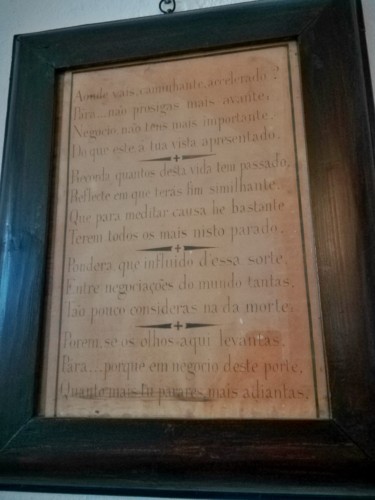 Aonde vais, caminhante, accelerado?
Pára...não prosigas mais avante;
Negocio não tens mais importante,
Do que este, á tua vista apresentado.
Recorda quantos desta vida tem passado,
Reflecte em que terás fim similhante,
Que para meditar causa he bastante
Terem todos os mais nisto parado.
Pondera, que influido d'essa sorte,
Entre negociações do mundo tantas,
Tão pouco consideras na da morte;
Porém, se os olhos aqui levantas,
Pára...porque em negocio deste porte,
Quanto mais tu parares, mais adiantas.